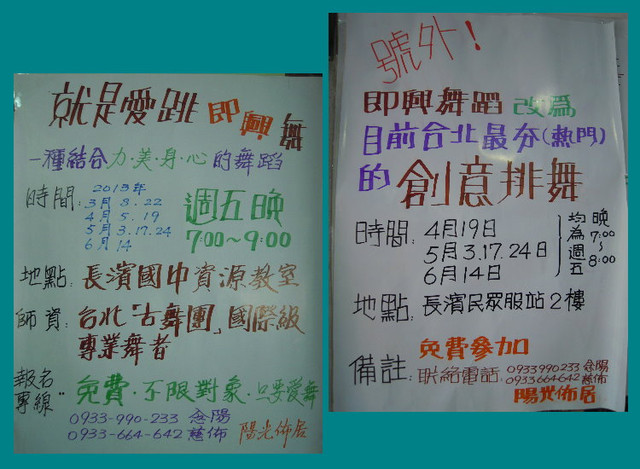 就是愛跳即興舞
一種結合力·美·身·心的舞蹈
時間:
2013年
3月 8.22
4月 5.19
5月 3.17.24
6月 14
週五晚
7:00~9:00
地點: 長濱國中資源教室
師資: 台北「古舞團」國際級
專業舞者
報名專線"
免費·不限對象·只要愛舞
0933-990-233 念陽
0933-664-642 慈佈
陽光佈居
號外!
即興舞蹈 改為
目前台北最夯(熱門)
的創意排舞
時間: 4月19日
5月3.17.24日
6月14日
均為週五
晚7:00~8:00
地點: 長濱民眾服站2樓
免費參加
備註: 聯絡電話:
0933990233 念陽
0933664642 慈佈
陽光佈居